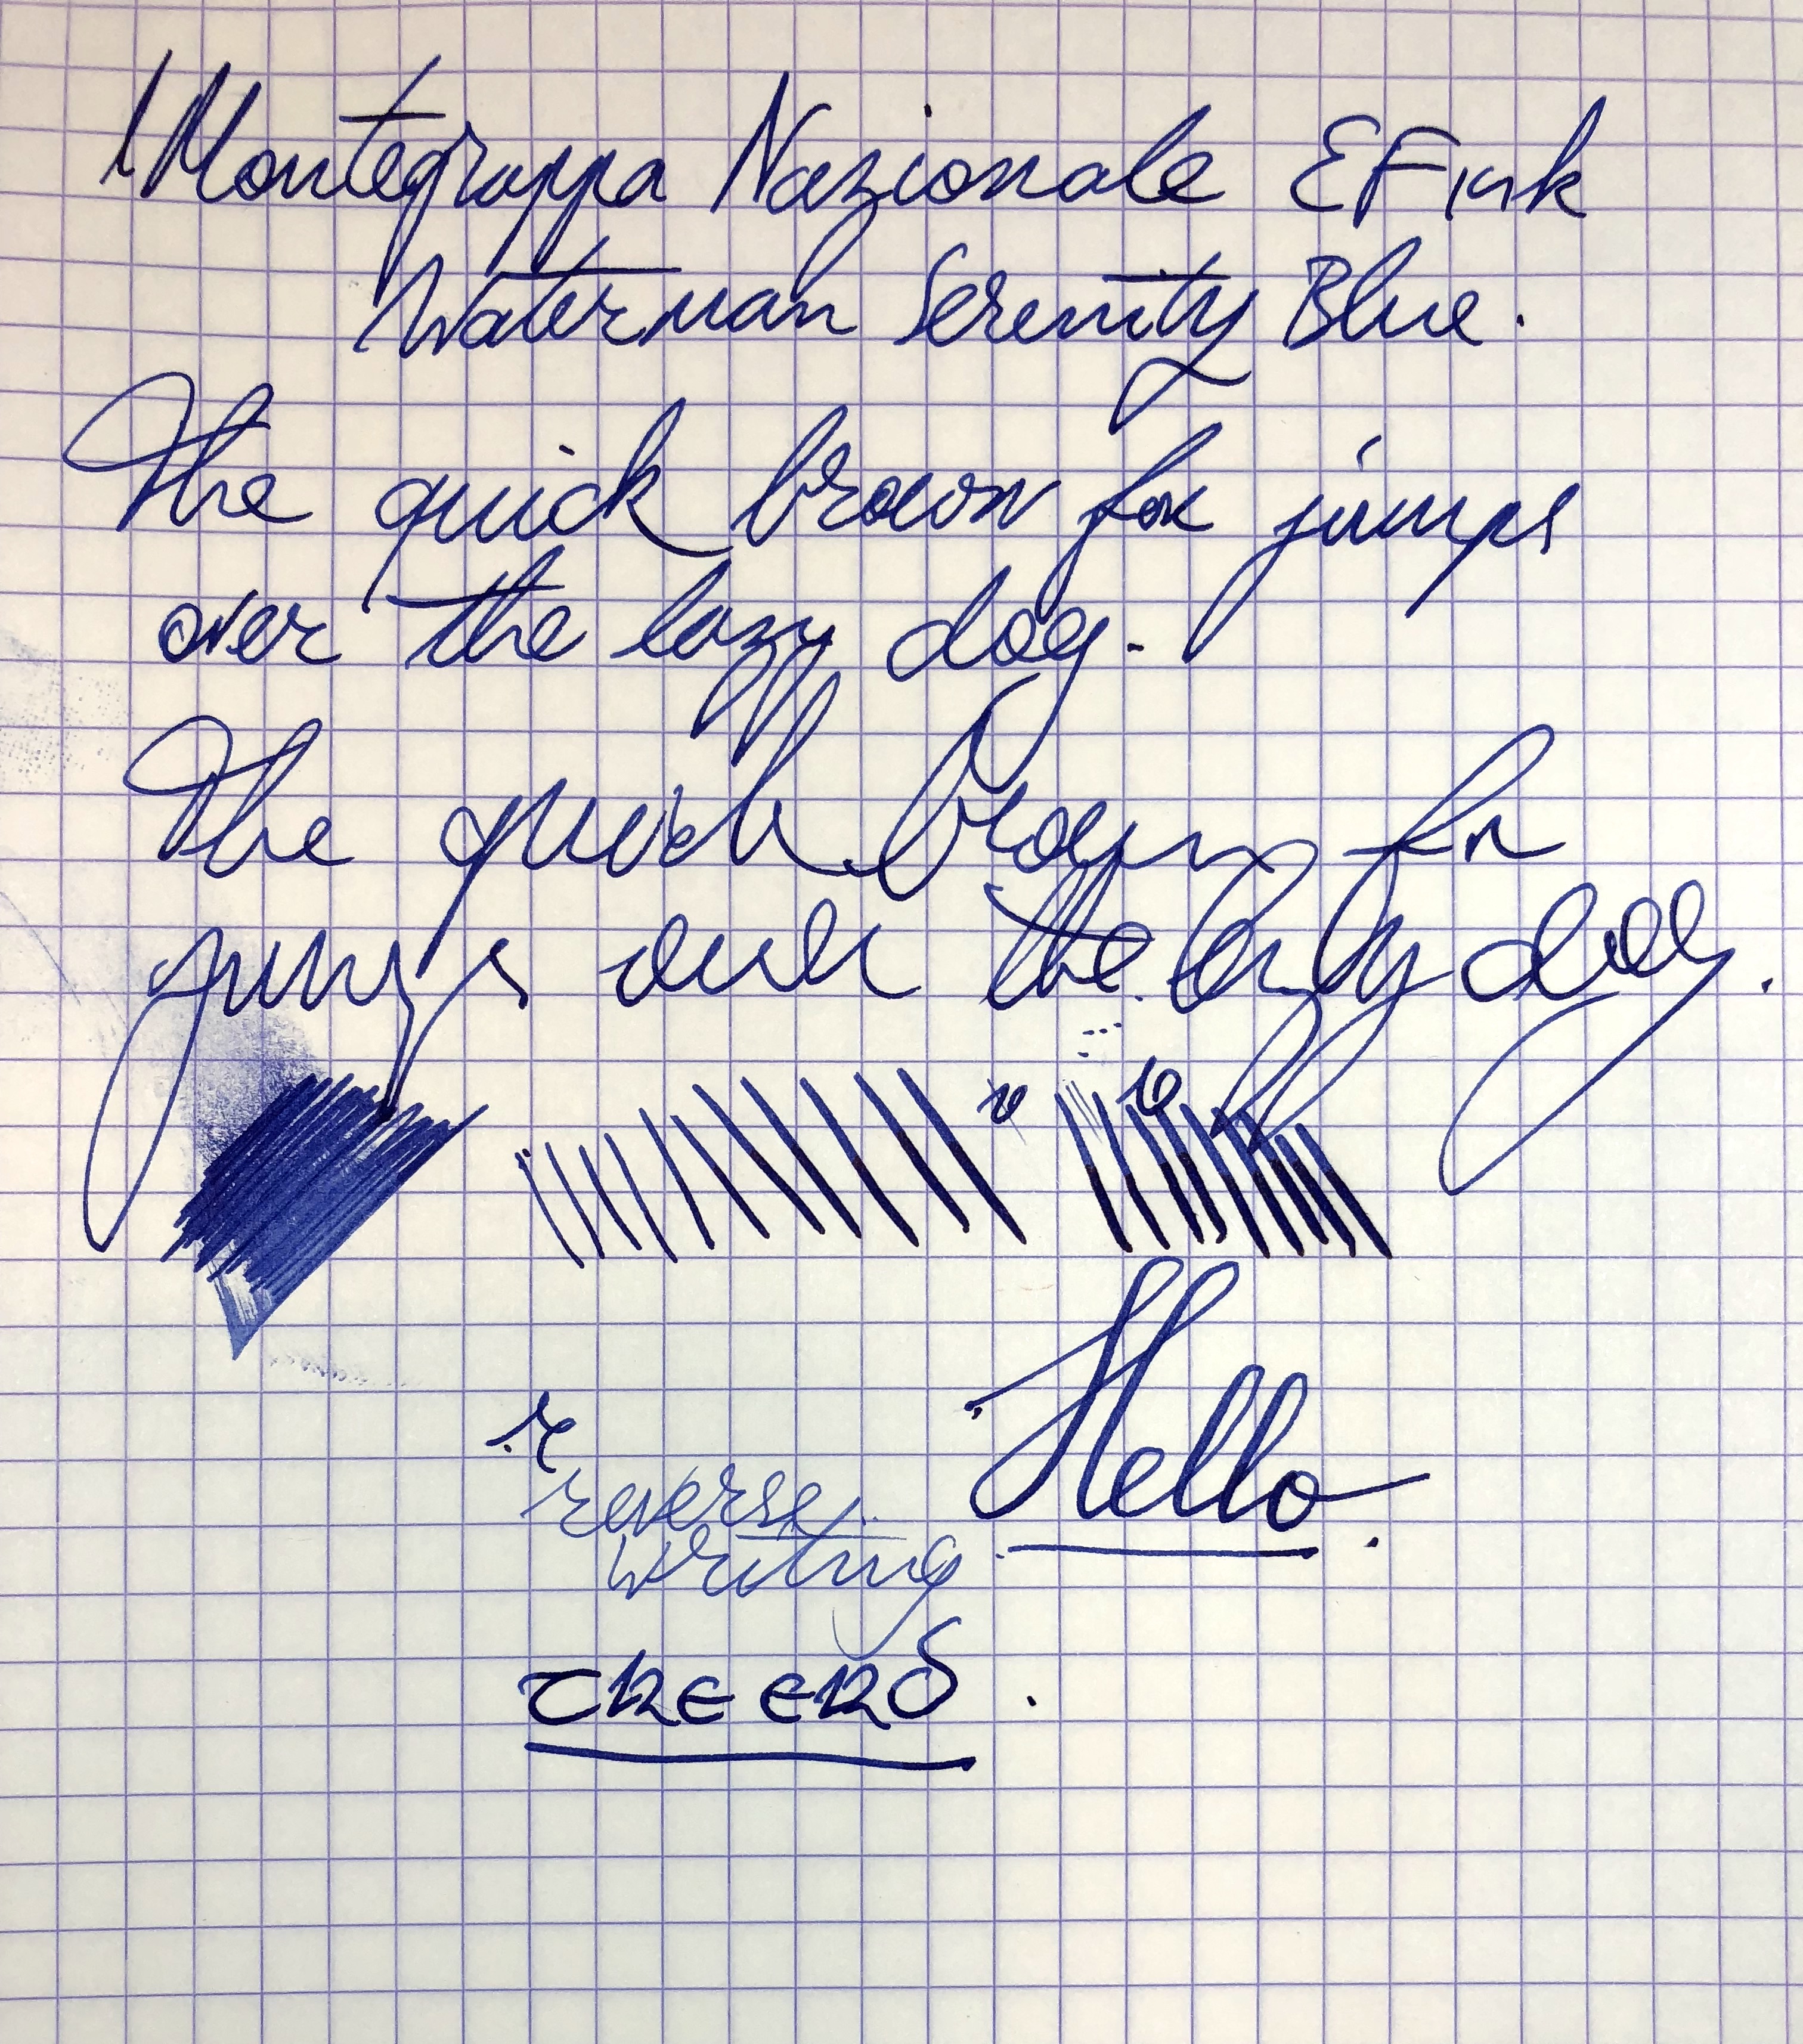 Montegrappa Nazionale EF ink
Waterman Serenity Blue.
The quick brown fox jumps
over the lazy dog.
The quick brown fox
jumps over the lazy dog.
Hello
r
reverse
writing
THE END.